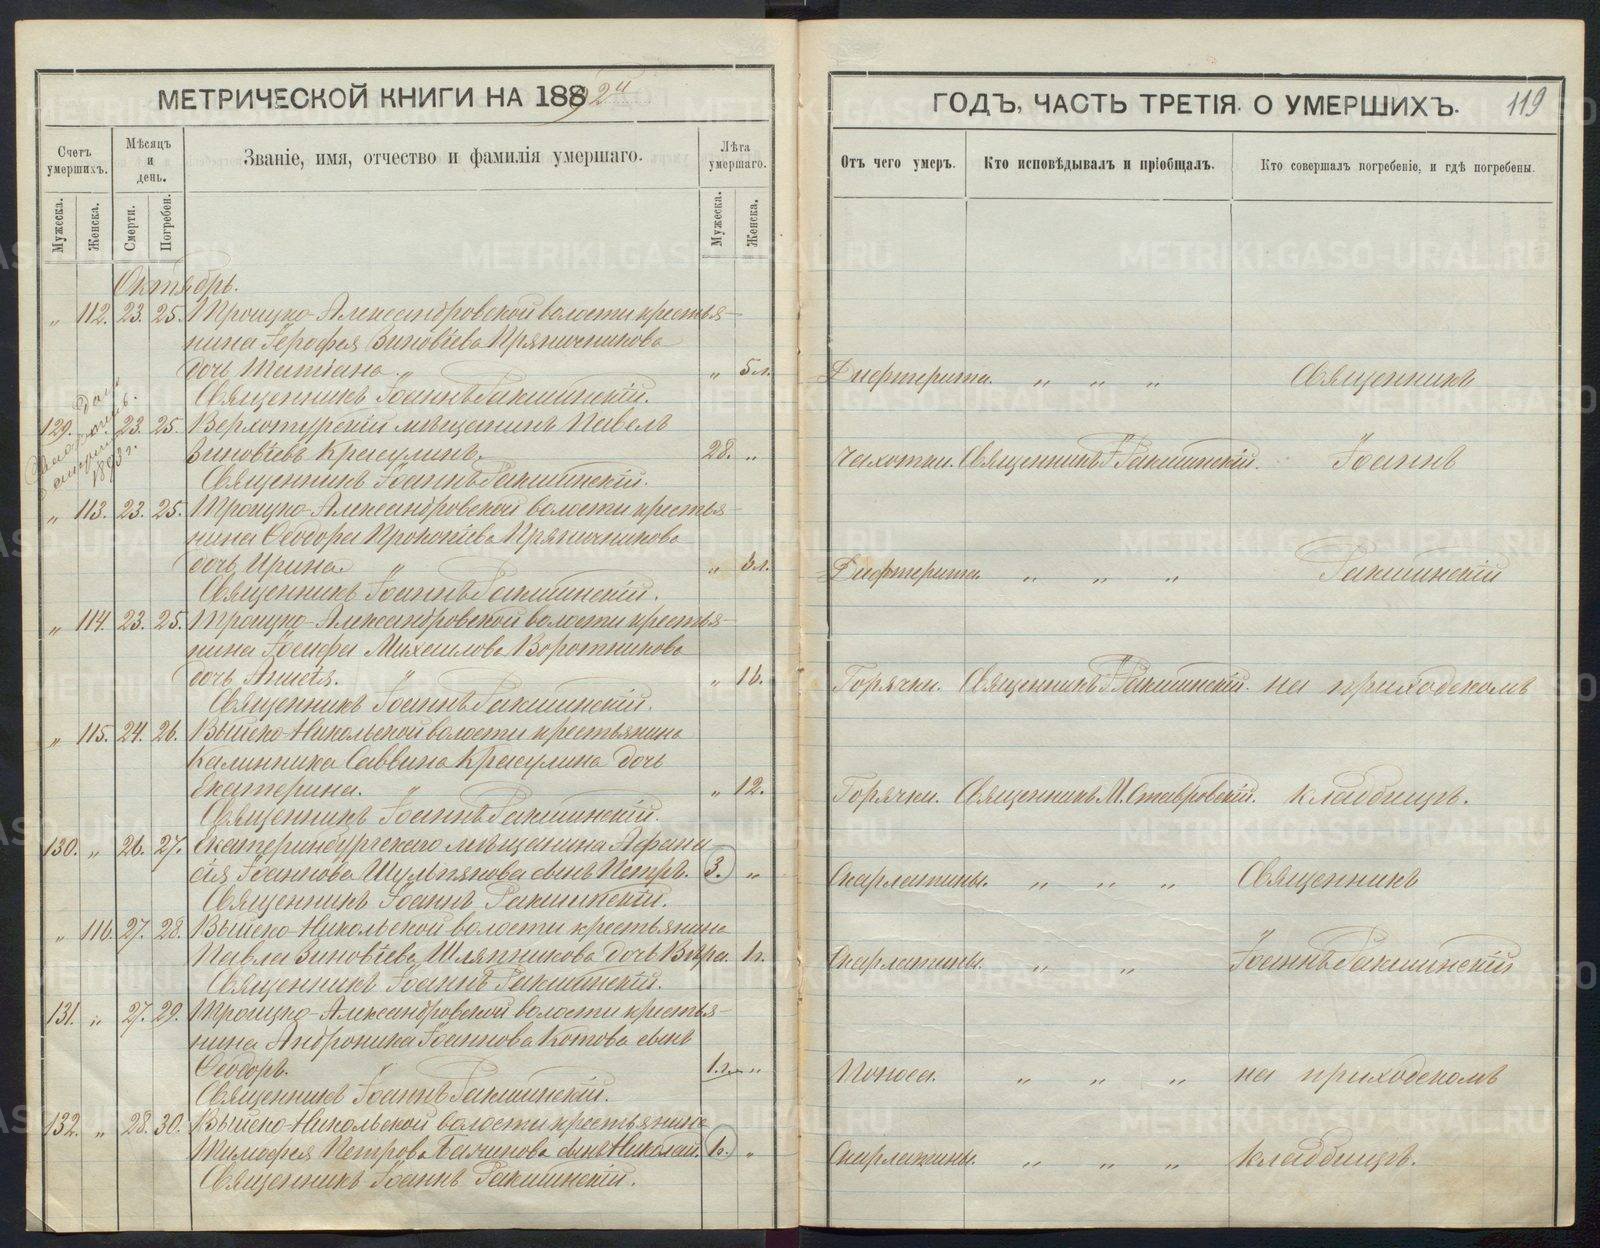 МЕТРИЧЕСКОЙ КНИГИ НА 1892й
Счетъ умершихъ.
Мѣсяцъ и день.
Званіе, имя, отчество и фамилія умершаго.
Лѣта умершаго.
Мужеска. Женска. Смерти. Погребен. Мужеска. Женска.
Октябрь.
„ 112. 23. 25. Троицко-Александровской волости крестья-
нина Іерофея Зиновіева Пряничникова
дочь Татіана. „ 5 л.
Священникъ Іоаннъ
129. 23. 25. Верхотурскій мѣщанинъ Павелъ
Зиновіевъ Красулинъ. 28. „
Священникъ Іоаннъ
1893 г.
„ 113. 23. 25. Троицко-Александровской волости крестья-
нина Ѳеодора Прокопіева Пряничникова
дочь Ирина. „ 3 л.
Священникъ Іоаннъ
„ 114. 23. 25. Троицко-Александровской волости крестья-
нина Іосифа Михаилова Воротникова
дочь Анисія. „ 16.
Священникъ Іоаннъ
„ 115. 24. 26. Выйско-Никольской волости крестьянина
Каллиника Саввина Красулина дочь
Екатерина. „ 12.
Священникъ Іоаннъ
130. „ 26. 27. Екатеринбургскаго мѣщанина Афана
сія Іоаннова сынъ Петръ. 3. „
Священникъ Іоаннъ
„ 116. 27. 28. Выйско-Никольской волости крестьянина
Павла Зиновіева Шляпникова дочь Вѣра.
Священникъ Іоаннъ
131. „ 27. 29. Троицко-Александровской волости крестья-
нина Андроника Іоаннова Котова сынъ
Ѳеодоръ. 1. г. „
Священникъ Іоаннъ
132. „ 28. 30. Выйско-Никольской волости крестьянина
Тимофея Петрова сынъ Николай. „
Священникъ Іоаннъ
ГОДЪ, ЧАСТЬ ТРЕТІЯ. О УМЕРШИХЪ. 119
Отъ чего умеръ.
Кто исповѣдывалъ и пріобщалъ.
Кто совершалъ погребеніе, и гдѣ погребены.
Дифтерита. „ „ „ Священникъ
Чахотки. Священникъ І. Іоаннъ
Дифтерита. „ „ „
Горячки. Священникъ І. на приходскомъ
Горячки. Священникъ М. Ставровскій. кладбищѣ.
Скарлатины. „ „ „ Священникъ
Скарлатины. „ „ Іоаннъ
Поноса. „ „ „ на приходскомъ
Скарлатины. „ „ „ кладбищѣ.
METRIKI.GASO-URAL.RU